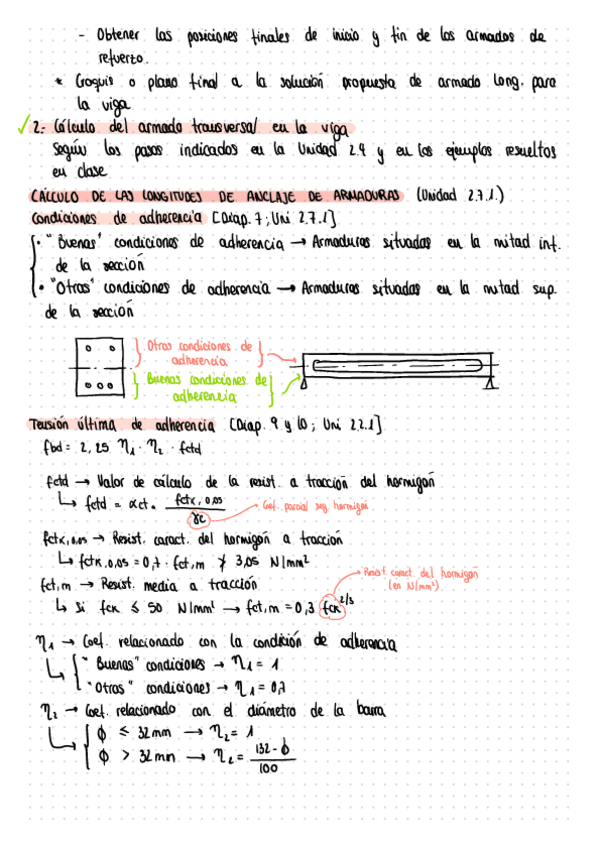 - Obtener las posiciones finales de inicio y fin de los armados de
refuerzo.
* Croquis o plano final a la solución propuesta de armado long. para
la viga
✓ 2.- Cálculo del armado transversal en la viga
Según los pasos indicados en la Unidad 2.4 y en los ejemplos resueltos
en clase
CÁLCULO DE LAS LONGITUDES DE ANCLAJE DE ARMADURAS (Unidad 2.7.1.)
Condiciones de adherencia [Diap. 7; Uni 2.7.1]
• "Buenas" condiciones de adherencia → Armaduras situadas en la mitad inf.
de la sección
• "Otras" condiciones de adherencia → Armaduras situadas en la mitad sup.
de la sección
Otras condiciones de
adherencia
Buenas condiciones de
adherencia
Tensión última de adherencia [Diap. 9 y 10; Uni 2.2.1]
fbd = 2,25 η1 · η2 · fctd
fctd → Valor de cálculo de la resist. a tracción del hormigón
↳ fctd = αct · fctk,0,05 / γc → Coef. parcial seg. hormigón
fctk,0,05 → Resist. caract. del hormigón a tracción
↳ fctk,0,05 = 0,7 · fct,m ≯ 3,05 N/mm²
fct,m → Resist. media a tracción
Resist. caract. del hormigón
(en N/mm²)
↳ Si fck ≤ 50 N/mm² → fct,m = 0,3 fck^2/3
η1 → Coef. relacionado con la condición de adherencia
↳ "Buenas" condiciones → η1 = 1
"Otras" condiciones → η1 = 0,7
η2 → Coef. relacionado con el diámetro de la barra
↳ ϕ ≤ 32 mm → η2 = 1
ϕ > 32 mm → η2 = 132 - ϕ / 100